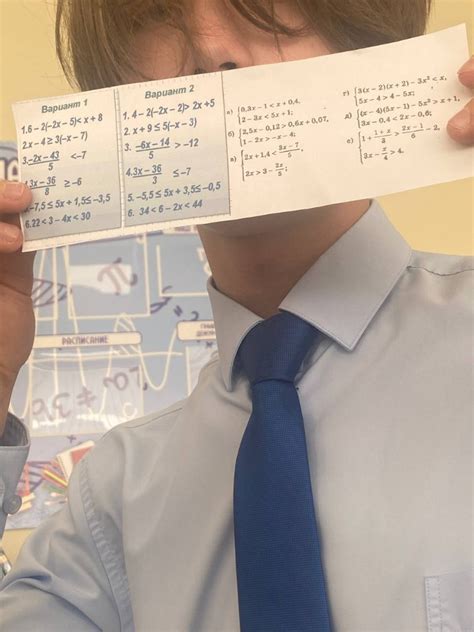 Вариант 1
1.6 – 2(–2x – 5)< x + 8
2x – 4 ≥ 3(–x – 7)
3. –2x – 43 / 5 < –7
4. 3x – 36 / 8 ≥ –6
–7,5 ≤ 5x + 1,5≤ –3,5
6.22 < 3 – 4x < 30
Вариант 2
1. 4 – 2(–2x – 2)> 2x +5
2. x + 9 ≤ 5(–x – 3)
3. –6x – 14 / 5 > –12
4. 3x – 36 / 3 ≤ –7
5. –5,5 ≤ 5x + 3,5≤ –0,5
6. 34 < 6 – 2x < 44
а) 0,3x – 1 < x + 0,4,
2 – 3x < 5x + 1;
б) 2,5x – 0,12 > 0,6x + 0,07,
1 – 2x > –x – 4;
в) 2x + 1,4 < 3x – 7 / 5,
2x > 3 – 2x / 5;
г) 3(x – 2)(x + 2) – 3x² < x,
5x – 4 > 4 – 5x;
д) (x – 4)(5x – 1) – 5x² > x + 1,
3x – 0,4 < 2x – 0,6;
е) 1 + 1 + x / 3 > 2x – 1 / 6 – 2,
3x – x / 4 > 4.
РАСПИСАНИЕ